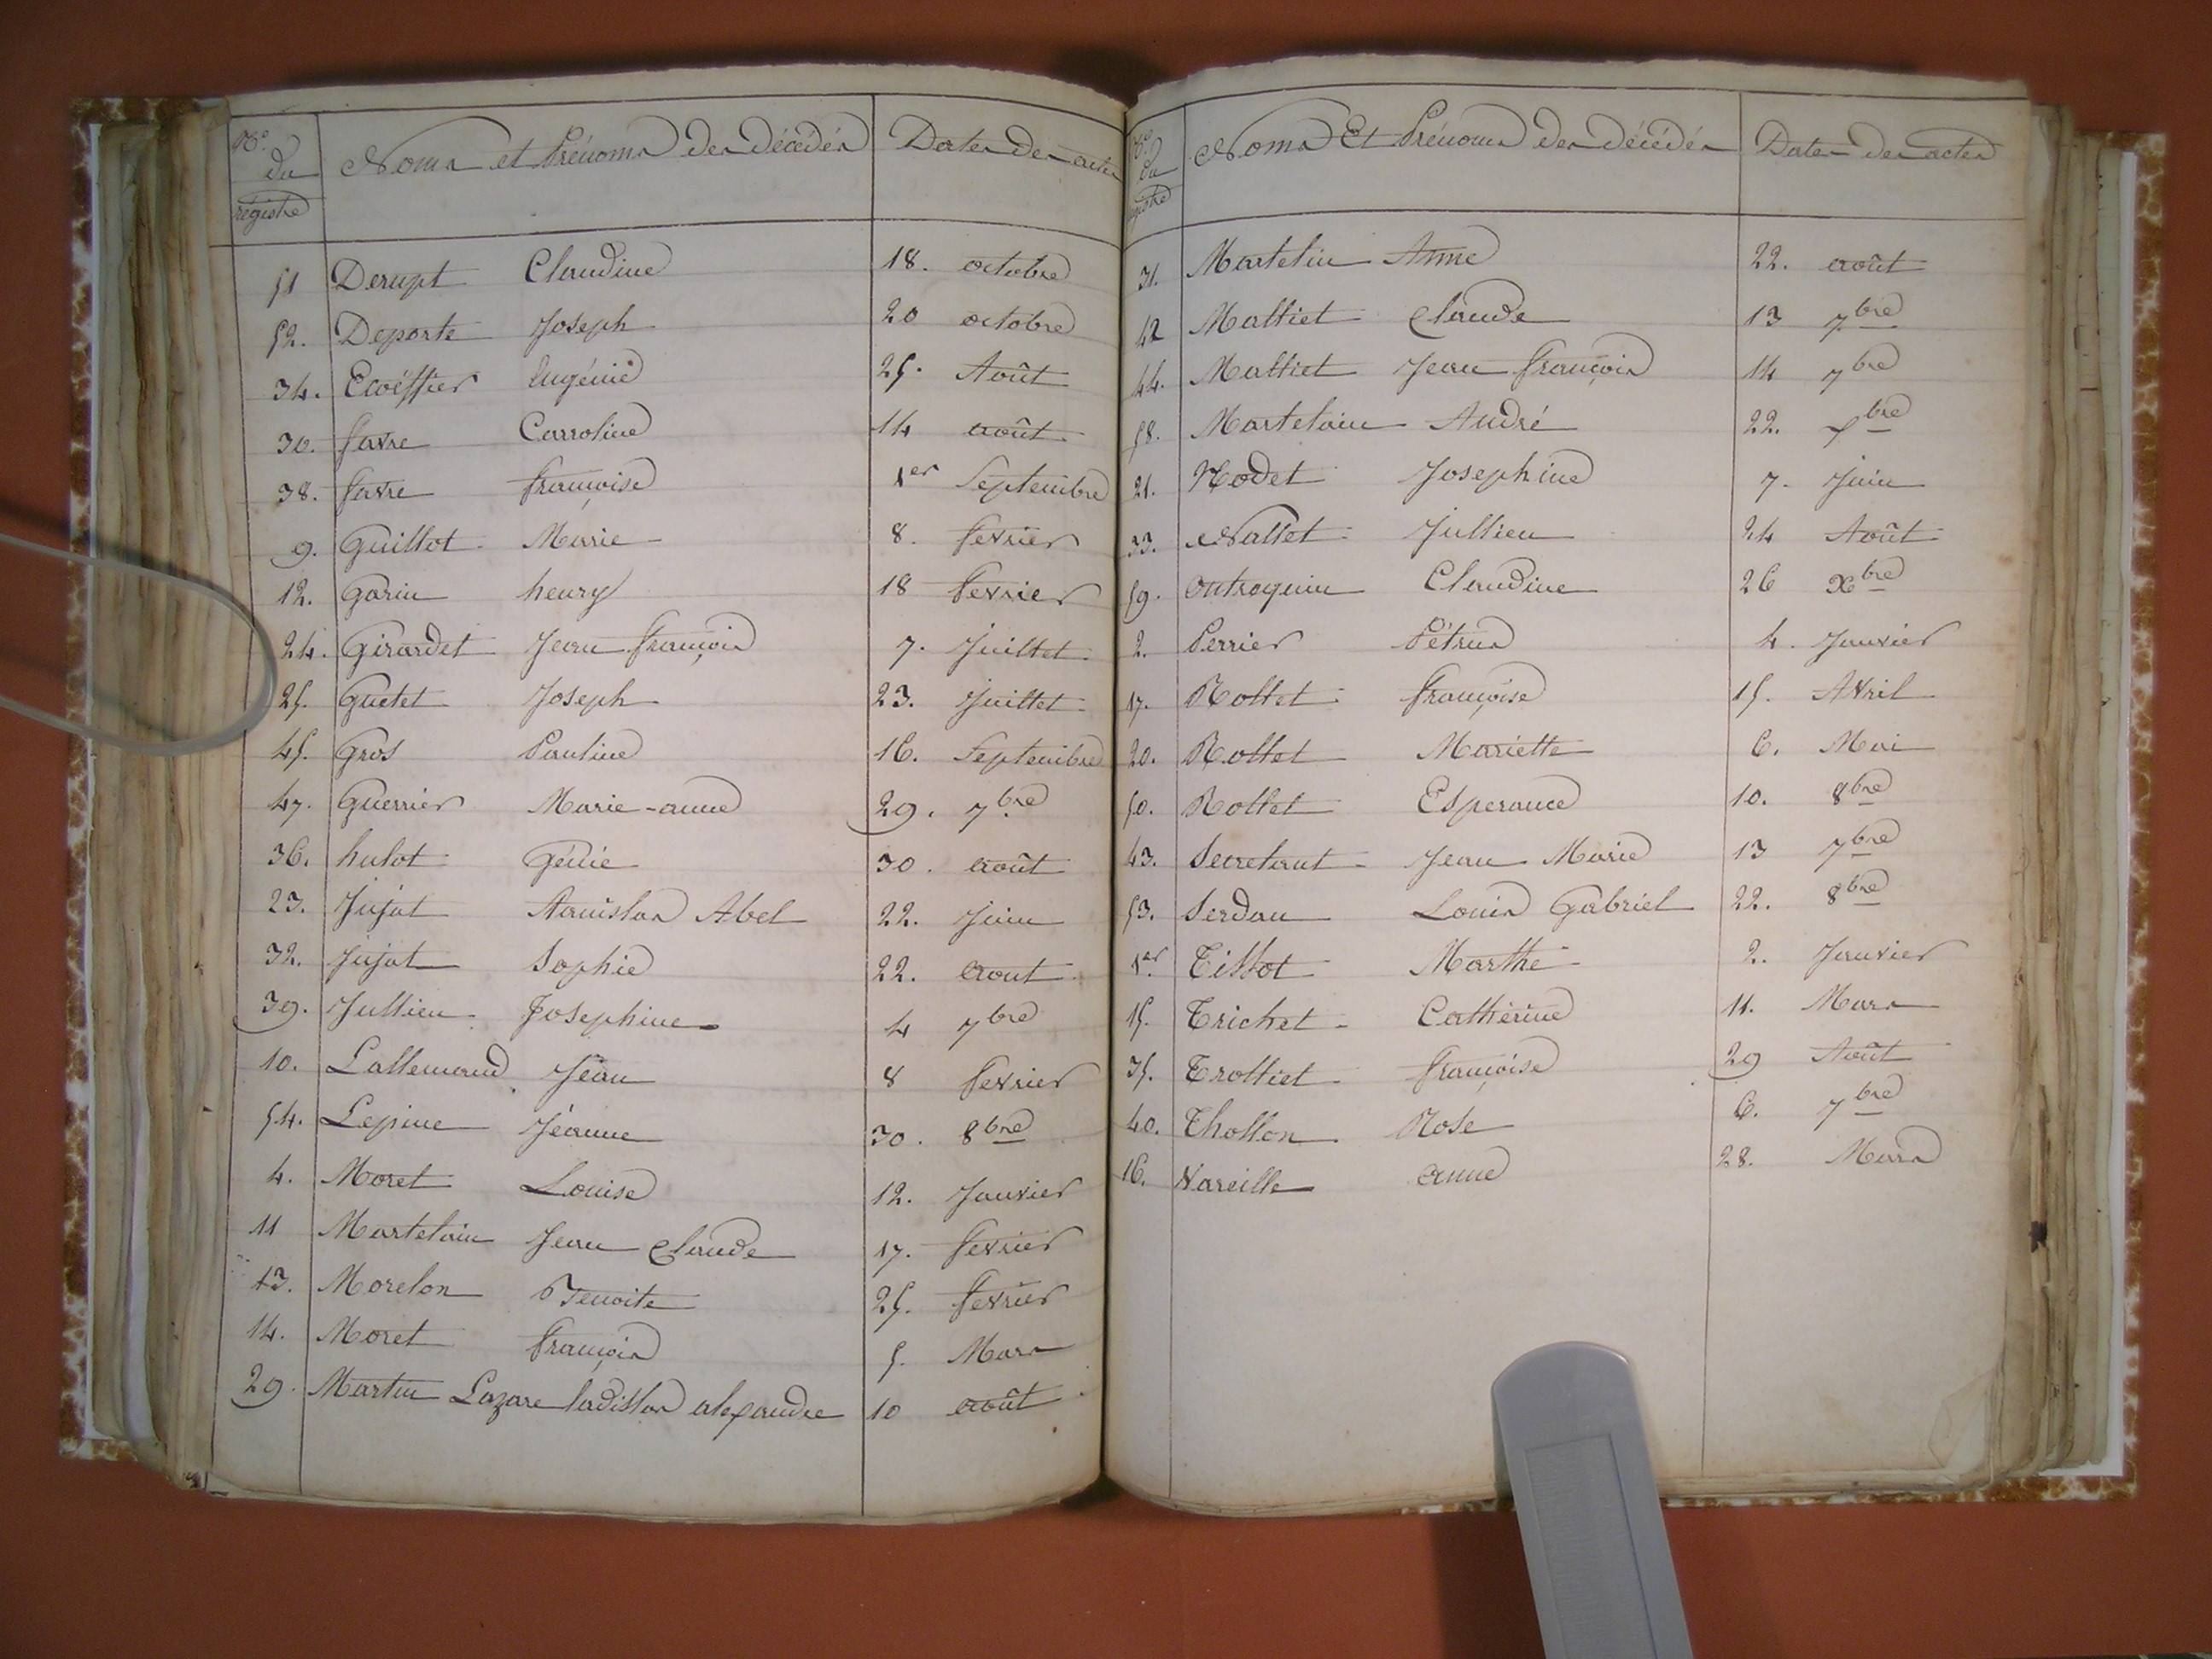 No. du registre Noms et Prénoms des décédés Dates des actes
51 Derupt Claudine 18. octobre
52. Deporte Joseph 20 octobre
34. Ecoëffier Eugénie 25. Août
30. favre Carroline 14 août
38. favre françoise 1er Septembre
9. Guillot Marie 8. fevrier
12. Garin henry 18 fevrier
24. Girardet Jean françois 7. Juillet
25. Guetet Joseph 23. Juillet
45. Gros Pauline 16. Septembre
47. Guerrier Marie-anne 29. 7bre
36. hulot Génie 30. août
23. Jujat Abel 22. Juin
32. Jujat Sophie 22. Aout
39. Jullien Josephine 4 7bre
10. Lallemand Jean 8 fevrier
54. Lepine Jéanne 30. 8bre
4. Moret Louise 12. Janvier
11 Martelain Jean Claude 17. fevrier
13. Morelon Benoite 25. fevrier
14. Moret françois 5. Mars
29. Martin Lazare ladislas alexandre 10 août
No. du registre Noms Et Prénoms des décédés Dates des actes
31. Martelin Anne 22. août
42 Mattiet Claude 13 7bre
44. Mattiet Jean françois 14 7bre
58. Martelain André 22. bre
21. Nodet Josephine 7. Juin
33. Nallet Jullien 24 Août
59. outroquin Claudine 26 Xbre
2. Perrier Pétrus 4. Janvier
17. Rollet françoise 15. Avril
20. Rollet Mariette 6. Mai
50. Rollet Esperance 10. 8bre
43. Secretant Jean Marie 13 7bre
53. Serdan Louis Gabriel 22. 8bre
1er Tissot Marthe 2. Janvier
15. Trichet Cathérine 11. Mars
35. Trolliet françoise 29 Août
40. Thollon Rose 6. 7bre
16. Vareille anne 28. Mars